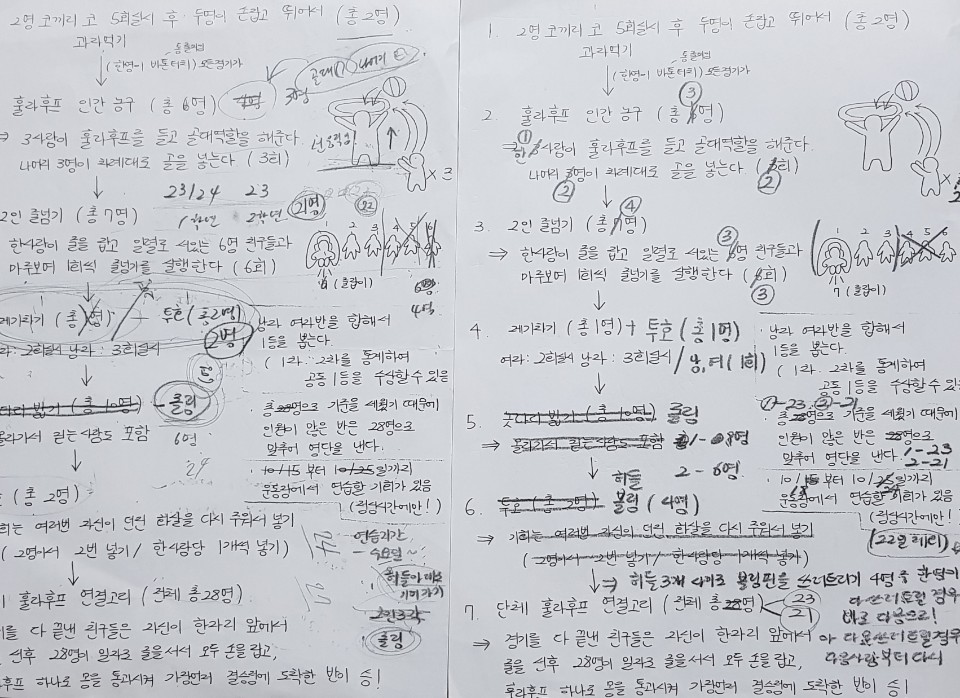 2명 코끼리 코 5회실시 후 두명이 손잡고 뛰어서 (총 2명)
과자먹기
(한명이 바톤터치) 모든경기가
훌라후프 인간 농구 (총 6명)
3명
골대(1)
⇒ 3사람이 훌라후프를 들고 골대역할을 해준다.
나머지 3명이 차례대로 골을 넣는다 (3회)
× 3
23/24 23
1학년 2학년
21명
22
2인 줄넘기 (총 7명)
한사람이 줄을 잡고 일렬로 서있는 6명 친구들과
마주보며 1회씩 줄넘기를 실행한다 (6회)
1 2 3 4 5 6
(줄잡이)
6명
4명
제기차기 (총 명) - 투호 (총2명)
2명
여자: 2회실시 남자: 3회실시
남자 여자반을 합해서
1등을 뽑는다.
( 1차. 2차를 통계하여
공동 1등을 수상할 수 있음
다리 밟기 (총 10명) - 콜링
올라가서 걷는사람도 포함 6명
24
총 28명으로 기준을 세웠기 때문에
인원이 않은 반은 28명으로
맞추어 명단을 낸다.
10/15 부터 10/25일까지
운동장에서 연습할 기회가 있음
(점심시간에만!)
(총 2명)
기회는 여러번 자신이 던진 화살을 다시 주워서 넣기
( 2명이서 2번 넣기 / 한사람당 1개씩 넣기)
연습기간
2인3각
콜링
훌라후프 연결고리 (전체 총28명)
경기를 다 끝낸 친구들은 자신이 한자리 앞에서
선후 28명이 일자로 줄을 서서 모두 손을 잡고,
훌라후프 하나로 몸을 통과시켜 가장먼저 결승점에 도착한 반이 승!
1. 2명 코끼리 코 5회실시 후 두명이 손잡고 뛰어서 (총 2명)
과자먹기
(한명이 바톤터치) 모든경기가
2. 훌라후프 인간 농구 (총 6명)
③
① 3사람이 훌라후프를 들고 골대역할을 해준다.
나머지 3명이 차례대로 골을 넣는다 (3회)
② ②
3. 2인 줄넘기 (총 7명)
④
⇒ 한사람이 줄을 잡고 일렬로 서있는 6명 친구들과
③
마주보며 1회씩 줄넘기를 실행한다 (6회)
③
1 2 3 4 5 6
7 (줄잡이)
4. 제기차기 (총 1명) + 투호 (총 1명)
여자: 2회실시 남자: 3회실시 / 남,여 (1회)
남자 여자반을 합해서
1등을 뽑는다.
( 1차. 2차를 통계하여
공동 1등을 수상할 수 있음
5. 놋다리 밟기 (총 10명) 콜링
⇒ 올라가서 걷는사람도 포함 1-08명
2-6명
①-23, ②-21
총 28명으로 기준을 세웠기 때문에
인원이 않은 반은 28명으로
맞추어 명단을 낸다.
1-23
2-21
10/15 부터 10/25일까지
운동장에서 연습할 기회가 있음
(점심시간에만!)
허들
6. 투호 (총 2명) 볼링 (4명)
⇒ 기회는 여러번 자신이 던진 화살을 다시 주워서 넣기
( 2명이서 2번 넣기 / 한사람당 1개씩 넣기)
⇒ 허들 3개 사이로 볼링핀을 쓰러트리기 4명 중 한명이
다 쓰러트릴 경우
바로 다음으로!
7. 단체 훌라후프 연결고리 (전체 총 28명)
23
21
⇒ 경기를 다 끝낸 친구들은 자신이 한자리 앞에서
줄을 선후 28명이 일자로 줄을 서서 모두 손을 잡고,
다음사람부터 다시
훌라후프 하나로 몸을 통과시켜 가장먼저 결승점에 도착한 반이 승!